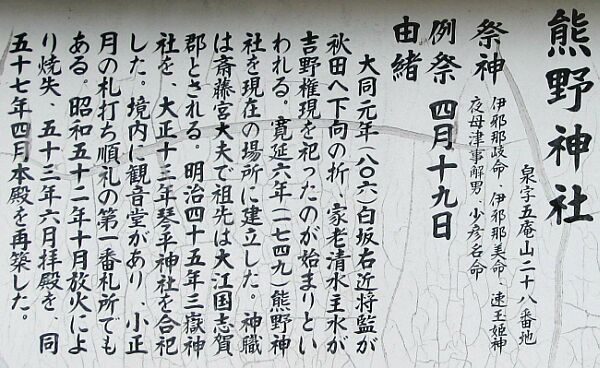 熊野神社
泉字五庵山二十八番地
祭神 伊邪那歧命、伊邪那美命、速玉姫神
夜母津事解男、少彦名命
例祭 四月十九日
由緒
大同元年(八〇六)白坂右近将監が
秋田へ下向の折、家老清水主水が
吉野権現を祀ったのが始まりとい
われる。寛延六年(一七四九)熊野神
社を現在の場所に建立した。神職
は斎藤宮大夫で祖先は大江国志賀
郡とされる。明治四十五年三嶽神
社を、大正十三年琴平神社を合祀
した。境内に観音堂があり、小正
月の札打ち順礼の第一番札所でも
ある。昭和五十二年十月放火によ
り焼失、五十三年六月拝殿を、同
五十七年四月本殿を再築した。